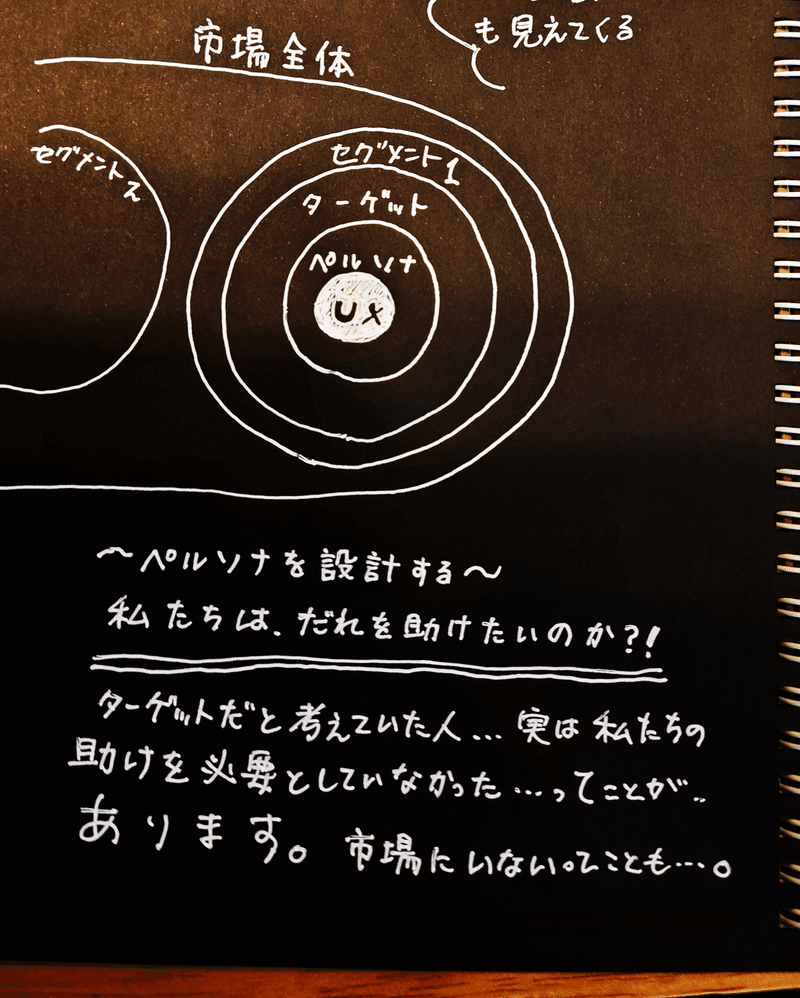 も見えてくる
市場全体
セグメント2
セグメント1
ターゲット
ペルソナ
UX
〜ペルソナを設計する〜
私たちは、だれを助けたいのか?!
ターゲットだと考えていた人...実は私たちの
助けを必要としていなかった...ってことが..
あります。市場にいないってことも...。